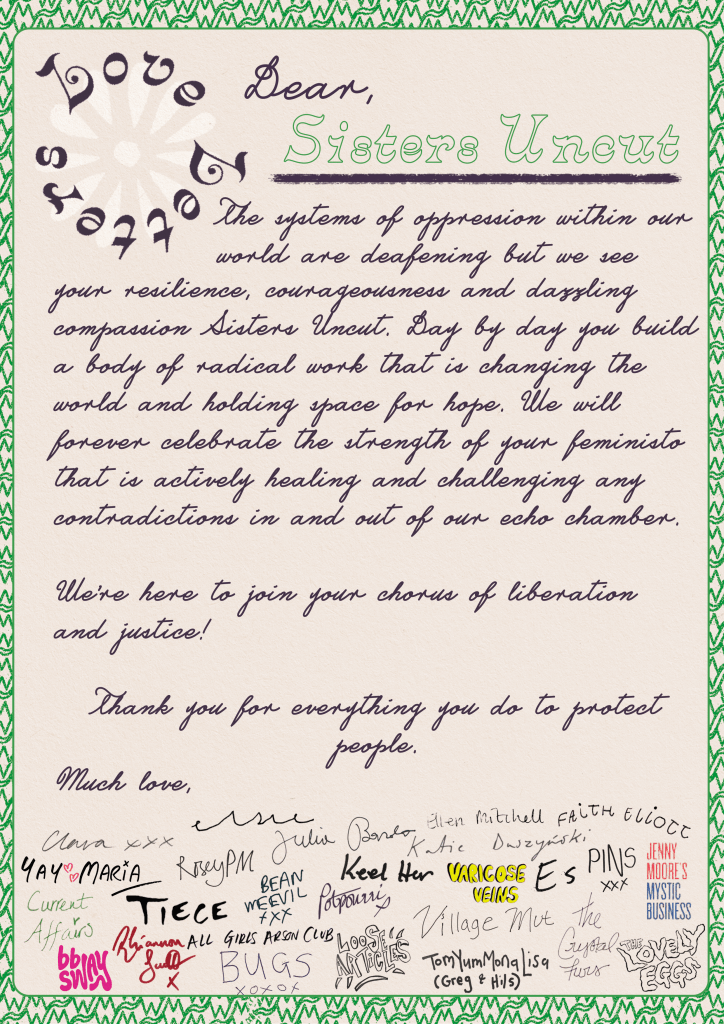 Love Letters
Dear,
Sisters Uncut
The systems of oppression within our
world are deafening but we see
your resilience, courageousness and dazzling
compassion Sisters Uncut. Day by day you build
a body of radical work that is changing the
world and holding space for hope. We will
forever celebrate the strength of your feministo
that is actively healing and challenging any
contradictions in and out of our echo chamber.
We're here to join your chorus of liberation
and justice!
Thank you for everything you do to protect
people.
Much love,
Ellen Mitchell
FAITH ELIOTT
Clara xxx
Julia Bardo
Katie
YAY MARIA
RoseyPM
Keel Her
VARICOSE
VEINS
Es
PINS
xxx
JENNY
MOORE'S
MYSTIC
BUSINESS
Current
Affairs
TIECE
BEAN
WEEVIL
xxx
Potpourri
Village Mut
The
Crystal
Furs
bbYAY
SWAY
Rhiannon
x
ALL GIRLS ARSON CLUB
BUGS
xoxox
LOOSE
ARTICLES
TomYumMonaLisa
(Greg & Hils)
THE
LOVELY
EGGS